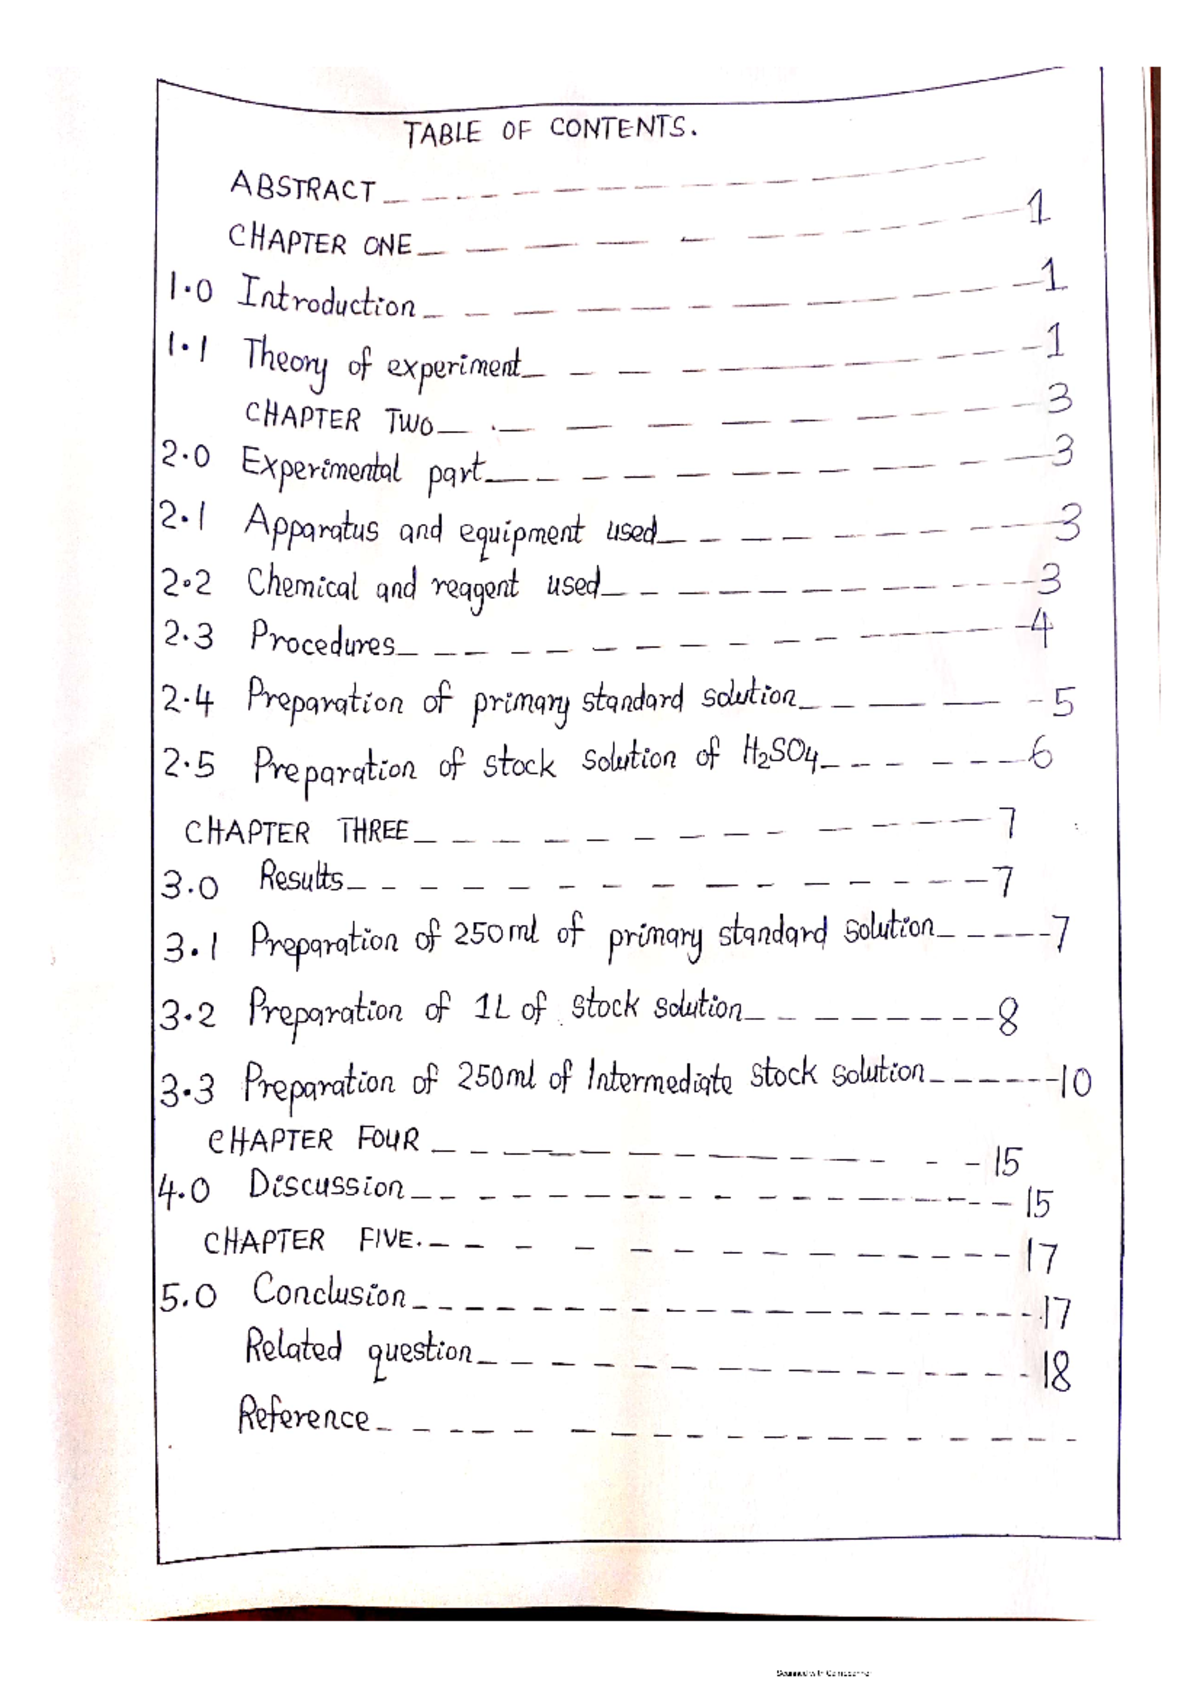 TABLE OF CONTENTS.
ABSTRACT_ _ _ _ _ _ _ _ _ _ _
CHAPTER ONE_ _ _ _ _ _ _ _ _ _ 1
1.0 Introduction_ _ _ _ _ _ _ _ _ _ 1
1.1 Theory of experiment_ _ _ _ _ _ _ _ 1
CHAPTER TWO_ _ _ _ _ _ _ _ _ 3
2.0 Experimental part_ _ _ _ _ _ _ _ _ 3
2.1 Apparatus and equipment used_ _ _ _ _ _ _ 3
2.2 Chemical and reagent used_ _ _ _ _ _ _ _ 3
2.3 Procedures_ _ _ _ _ _ _ _ _ _ 4
2.4 Preparation of primary standard solution_ _ _ _ _ 5
2.5 Preparation of stock solution of H₂SO₄_ _ _ _ _ _ 6
CHAPTER THREE_ _ _ _ _ _ _ _ _ _ 7
3.0 Results_ _ _ _ _ _ _ _ _ _ _ _ 7
3.1 Preparation of 250ml of primary standard solution_ _ _ _ _ 7
3.2 Preparation of 1L of stock solution_ _ _ _ _ _ _ _ 8
3.3 Preparation of 250ml of Intermediate stock solution_ _ _ _ _ _ 10
CHAPTER FOUR _ _ _ _ _ _ _ _ _ _ _ 15
4.0 Discussion_ _ _ _ _ _ _ _ _ _ _ _ 15
CHAPTER FIVE._ _ _ _ _ _ _ _ _ _ _ 17
5.0 Conclusion_ _ _ _ _ _ _ _ _ _ _ _ 17
Related question_ _ _ _ _ _ _ _ _ _ _ 18
Reference_ _ _ _ _ _ _ _ _ _ _ _
Scanned with CamScanner